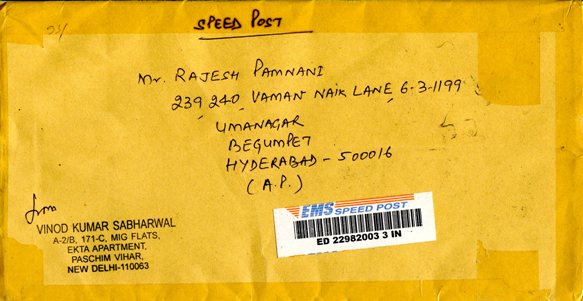 SPEED POST
Mr. RAJESH PAMNANI
239, 240, VAMAN NAIK LANE, 6-3-1199
UMANAGAR
BEGUMPET
HYDERABAD - 500016
(A.P.)
EMS SPEED POST
ED 22982003 3 IN
from
VINOD KUMAR SABHARWAL
A-2/B, 171-C, MIG FLATS,
EKTA APARTMENT,
PASCHIM VIHAR,
NEW DELHI-110063